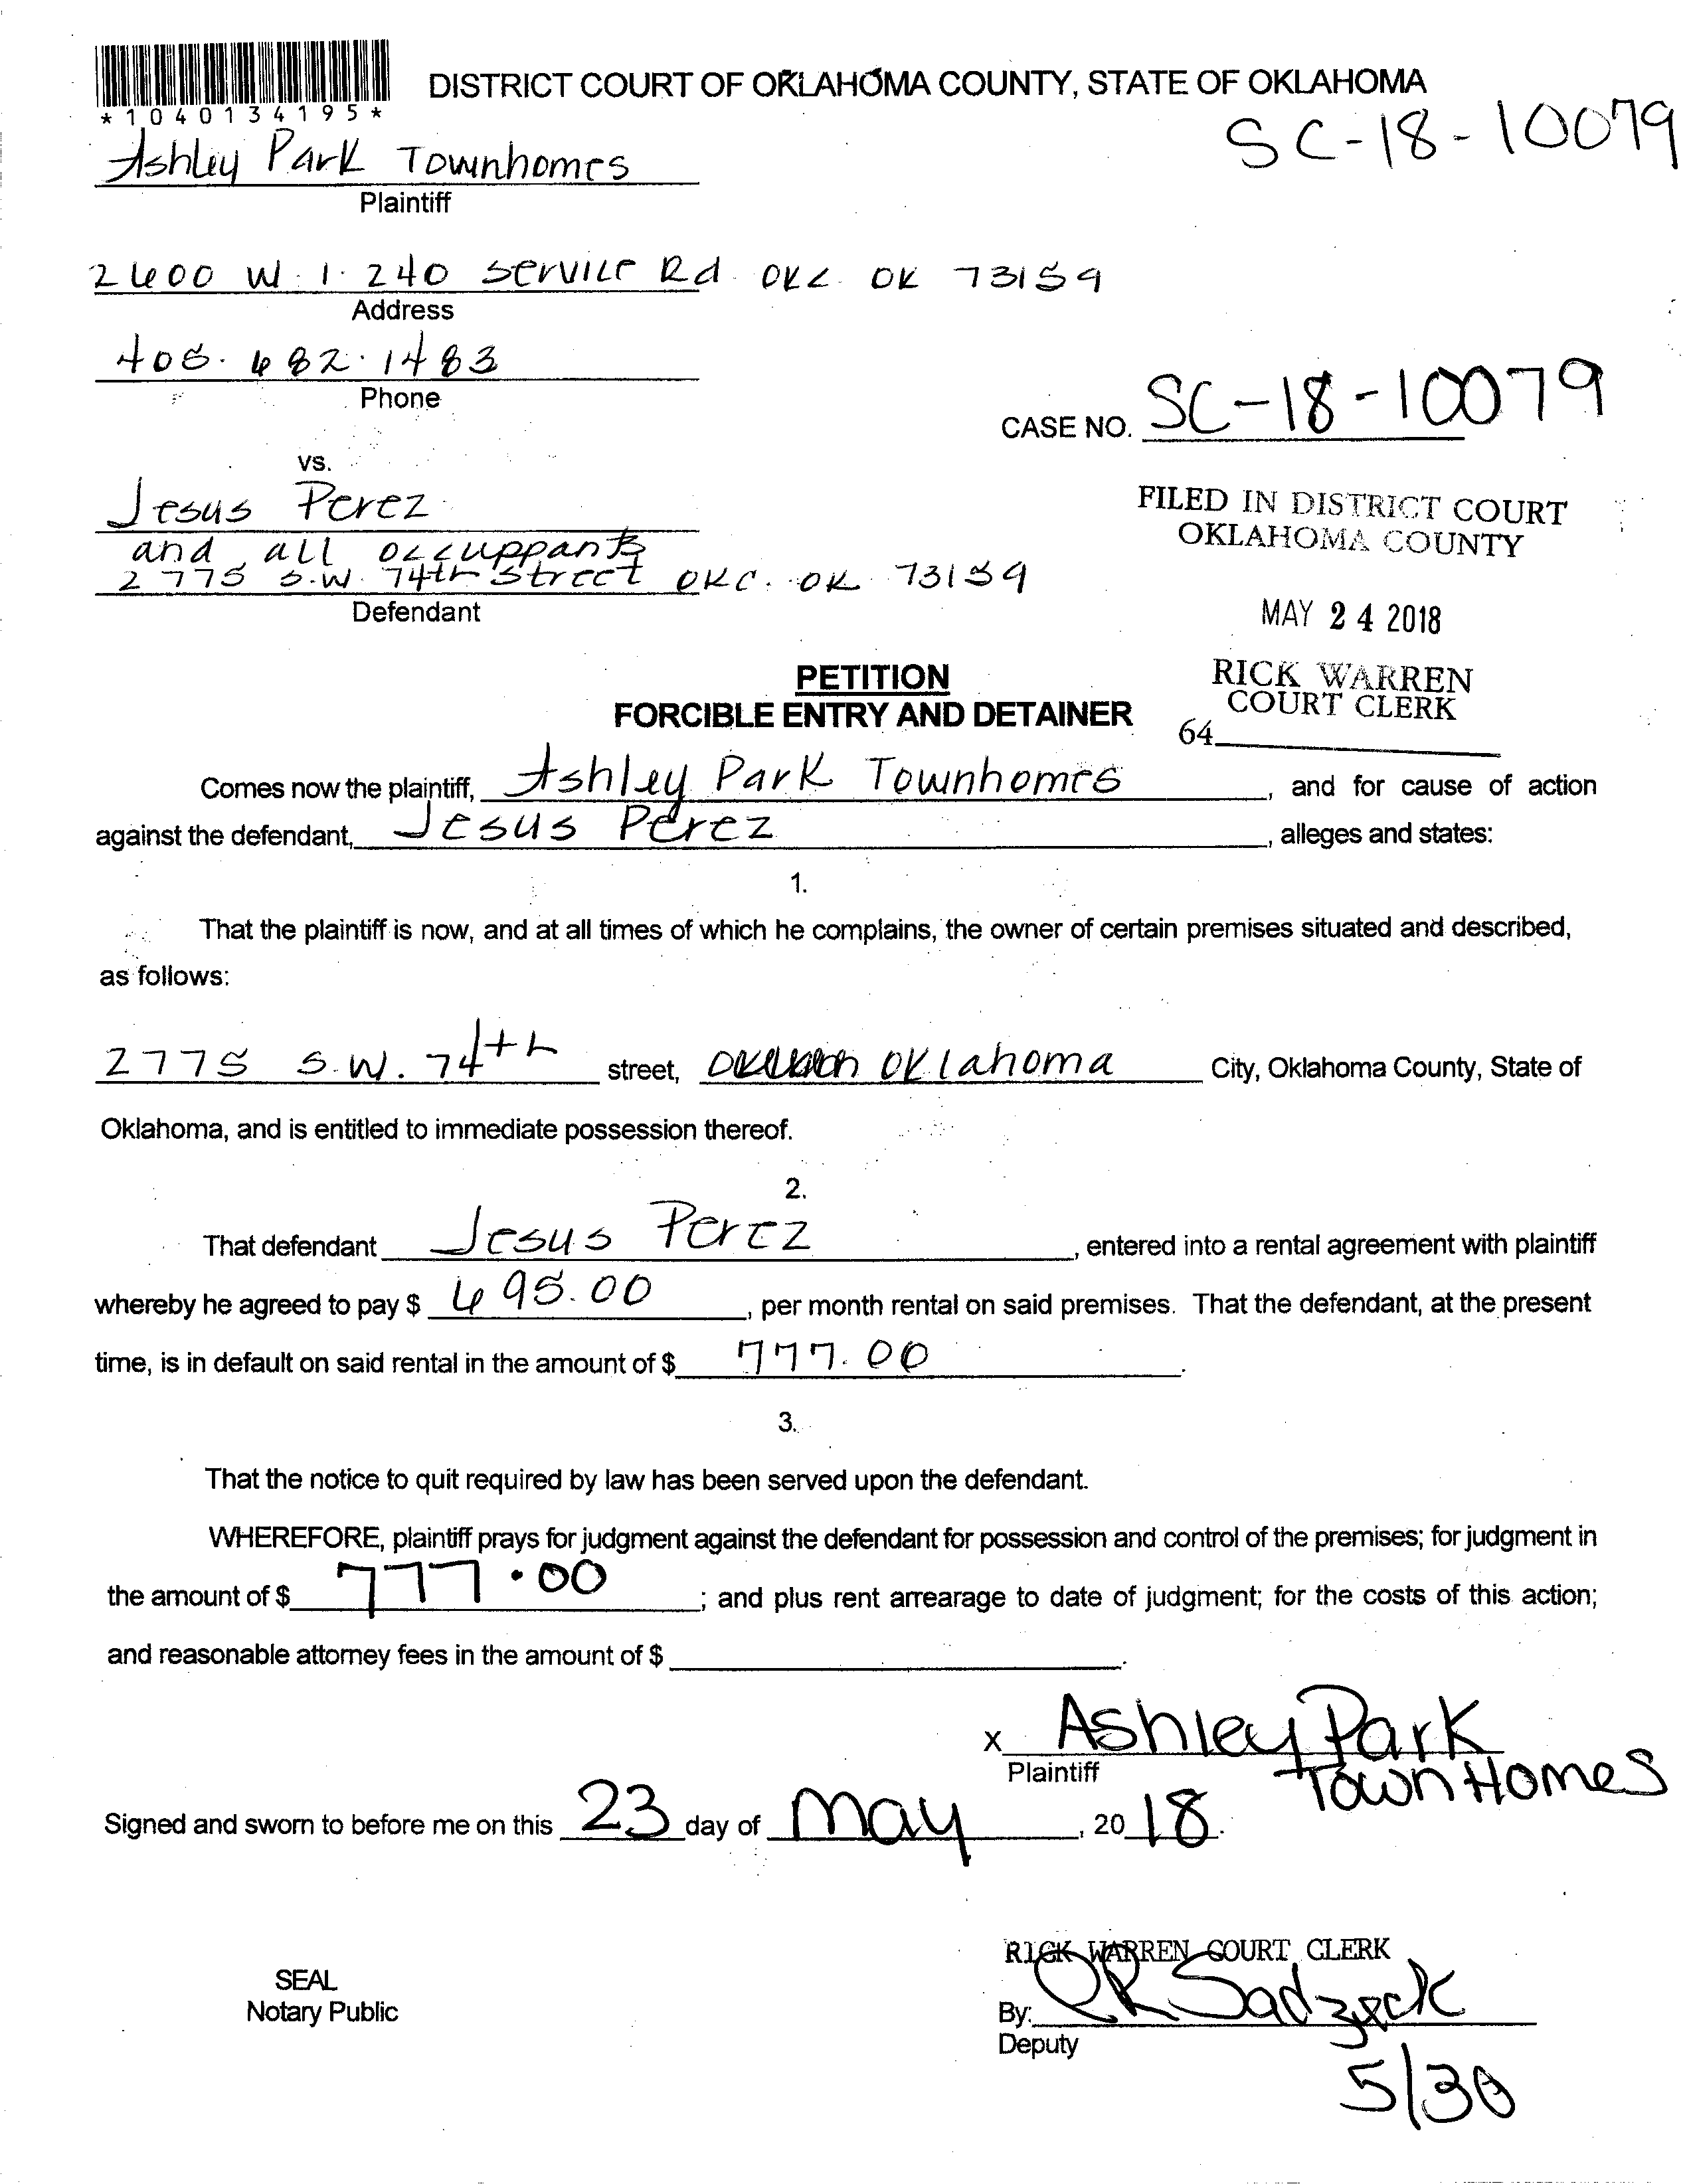 *1040134195*
DISTRICT COURT OF OKLAHOMA COUNTY, STATE OF OKLAHOMA
SC-18-10079
Ashley Park Townhomes
Plaintiff
2600 W. I. 240 Service Rd OKC OK 73159
Address
405. 682. 1483
Phone
CASE NO. SC-18-10079
vs.
Jesus Perez
and all occuppants
2775 S.W. 74th Street OKC. OK 73159
Defendant
FILED IN DISTRICT COURT
OKLAHOMA COUNTY
MAY 24 2018
RICK WARREN
COURT CLERK
64
PETITION
FORCIBLE ENTRY AND DETAINER
Comes now the plaintiff, Ashley Park Townhomes, and for cause of action
against the defendant, Jesus Perez, alleges and states:
1.
That the plaintiff is now, and at all times of which he complains, the owner of certain premises situated and described,
as follows:
2775 S.W. 74th street, Oklahoma City, Oklahoma County, State of
Oklahoma, and is entitled to immediate possession thereof.
2.
That defendant Jesus Perez, entered into a rental agreement with plaintiff
whereby he agreed to pay $ 695.00, per month rental on said premises. That the defendant, at the present
time, is in default on said rental in the amount of $ 777.00.
3.
That the notice to quit required by law has been served upon the defendant.
WHEREFORE, plaintiff prays for judgment against the defendant for possession and control of the premises; for judgment in
the amount of $ 777.00; and plus rent arrearage to date of judgment; for the costs of this action;
and reasonable attorney fees in the amount of $.
X Ashley Park
TownHomes
Plaintiff
Signed and sworn to before me on this 23 day of May, 20 18.
RICK WARREN COURT CLERK
SEAL
Notary Public
By:
Deputy
5/30